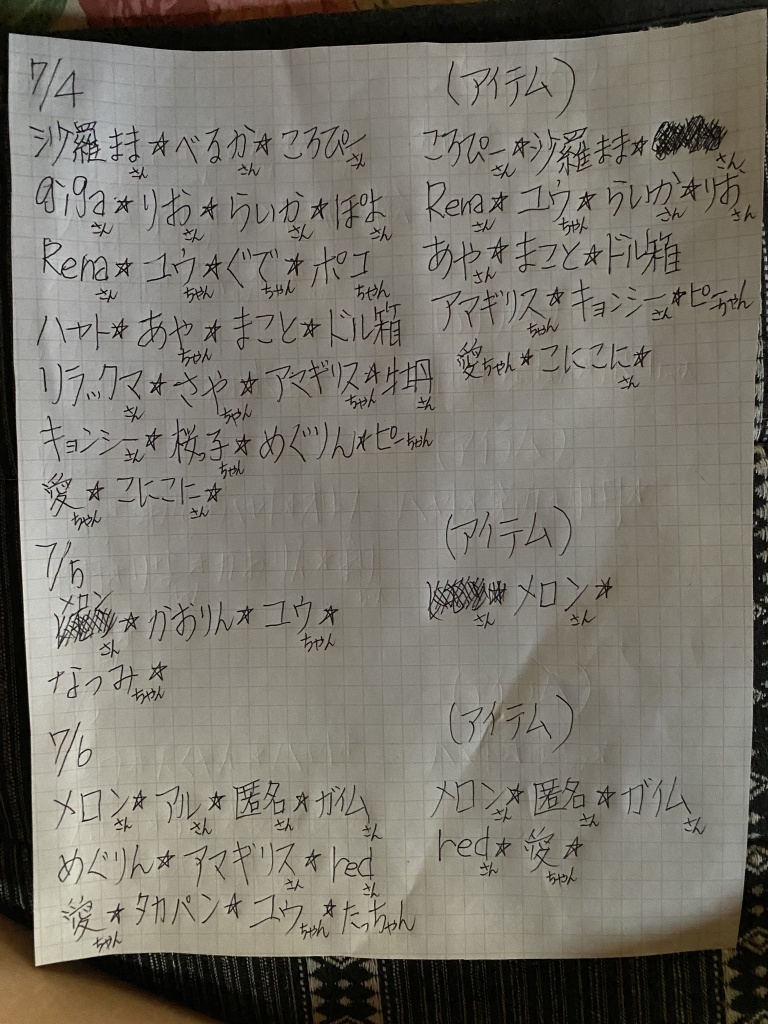 7/4
沙羅まま★べるか★ころぴー
さん さん さん
giga★りお★らいか★ぽよ
さん さん さん さん
Rena★ユウ★ぐで★ポコ
さん ちゃん ちゃん ちゃん
ハヤト★あや★まこと★ドル箱
ちゃん
リラックマ★さや★アマギリス★牡丹
さん ちゃん ちゃん さん
キョンシー★桜っ子★めぐりん★ピーちゃん
さん ちゃん
愛★こにこに★
ちゃん さん
(アイテム)
ころぴー★沙羅まま★
さん さん
Rena★ユウ★らいか★りお
さん ちゃん さん さん
あや★まこと★ドル箱
さん
アマギリス★キョンシー★ピーちゃん
ちゃん さん
愛ちゃん★こにこに★
さん
7/5
メロン
★かおりん★ユウ★
さん ちゃん
なつみ★
ちゃん
(アイテム)
★メロン★
さん さん
7/6
メロン★アル★匿名★ガイム
さん さん さん さん
めぐりん★アマギリス★red
さん さん
愛★タカパン★ユウ★たっちゃん
ちゃん ちゃん
(アイテム)
メロン★匿名★ガイム
さん さん さん
red★愛★
さん ちゃん